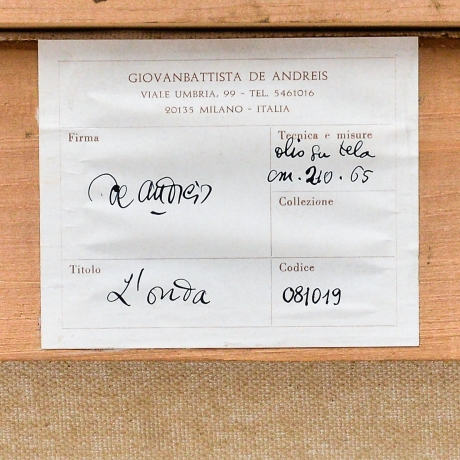 GIOVANBATTISTA DE ANDREIS
VIALE UMBRIA, 99 - TEL. 5461016
20135 MILANO - ITALIA
Firma
De Andreis
Tecnica e misure
olio su tela
cm. 210 . 65
Collezione
Titolo
L'onda
Codice
081019